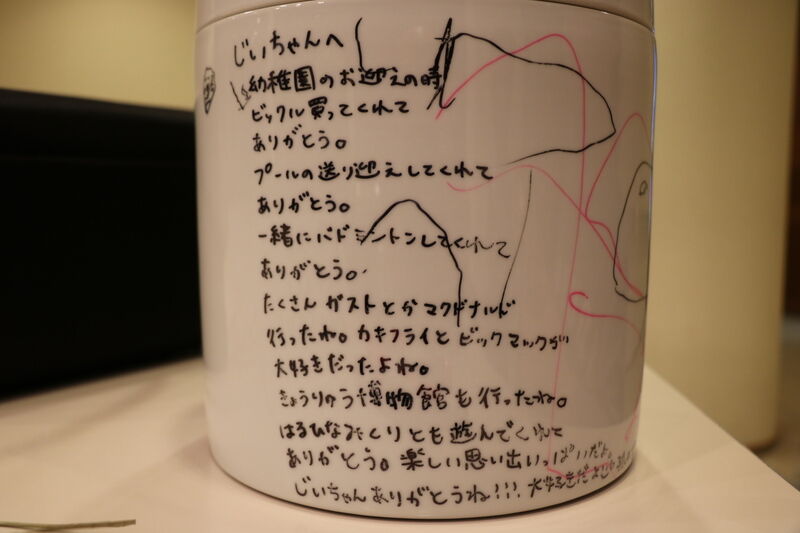 じいちゃんへ
幼稚園のお迎えの時
ビックル買ってくれて
ありがとう。
プールの送り迎えしてくれて
ありがとう。
一緒にバドミントンしてくれて
ありがとう。
たくさん ガストとかマクドナルド
行ったね。カキフライとビックマックが
大好きだったよね。
きょうりゅう博物館も行ったね。
はるひなみくりとも遊んでくれて
ありがとう。楽しい思い出いっぱいだよ。
じいちゃんありがとうね!!! 大好きだよ